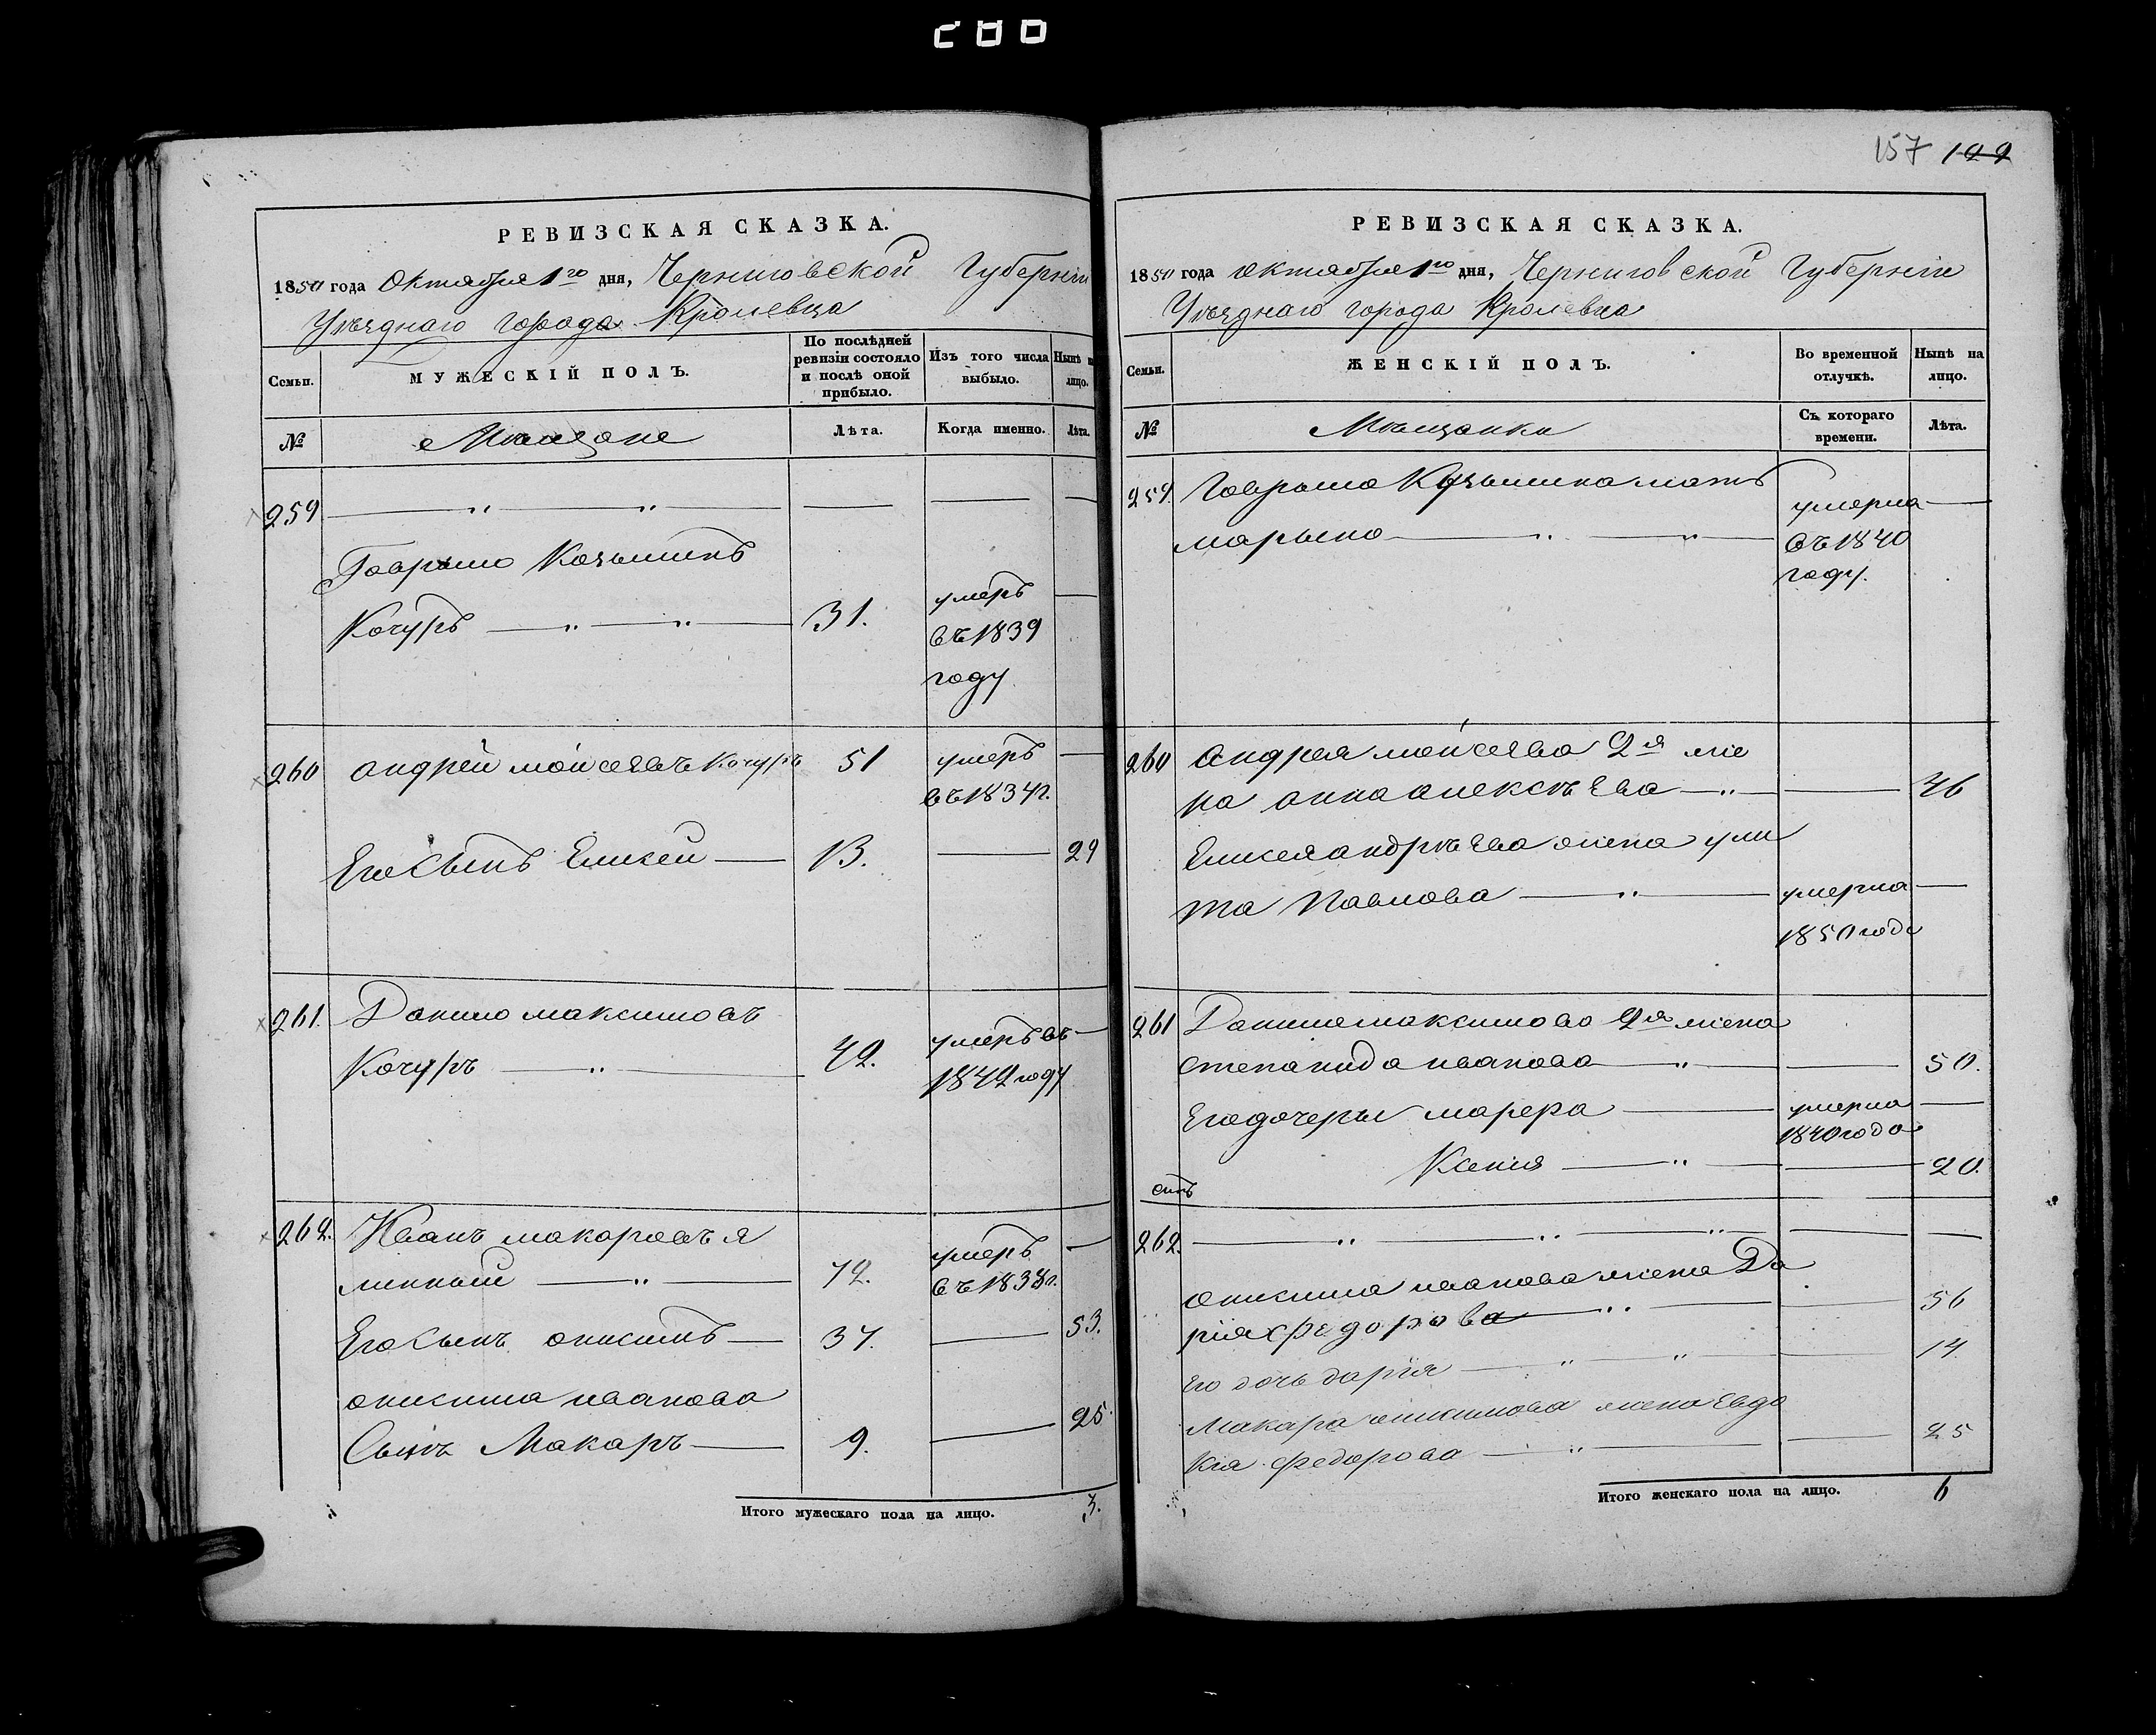 286
РЕВИЗСКАЯ СКАЗКА.
1850 года Октября 1го дня, Черниговской Губерніи
Уѣзднаго города Кролевца
Семьи.
МУЖЕСКІЙ ПОЛЪ.
По послѣдней ревизіи состояло и послѣ оной прибыло.
Изъ того числа выбыло.
Нынѣ на лицо.
№
Мѣщане
Лѣта.
Когда именно.
Лѣта.
259
Гаврыло Козьминъ
Кочуръ 31. умеръ
въ 1839
году
260 Андрей Мойсеевъ Кочуръ 51 умеръ
въ 1834г.
Его Сынъ Елисей 13. 29
261. Данило Максимовъ
Кочуръ 42. умеръ въ
1842 году
262. Иванъ Макаровъ
72. умеръ
въ 1838г.
Его Сынъ Онисимъ 37. 53.
Онисима Иванова
Сынъ Макаръ 9. 25.
Итого мужескаго пола на лицо. 3.
157 199
РЕВИЗСКАЯ СКАЗКА.
1850 года Октября 1го дня, Черниговской Губерніи
Уѣзднаго города Кролевца
Семьи.
ЖЕНСКІЙ ПОЛЪ.
Во временной отлучкѣ.
Нынѣ на лицо.
№
Мѣщанки
Съ котораго времени.
Лѣта.
259. Гаврыла Кузьмина мать
Марьяна умерла
въ 1840
году.
260 Андрея Мойсеева 2я же
на Анна Алексѣева 46
Елисея Андрѣева жена Ули
та Павлова умерла
1850 года
261 Данила Максимова 2я жена
Степанида Иванова 50.
Его дочеры Марфа умерла
1840 года
Ксенія 20.
262.
Онисима Иванова жена Да
рія Федорова 56
Его дочь Дарія 14
Макара Онисимова жена Евдо
кія Федорова 25
Итого женскаго пола на лицо. 6